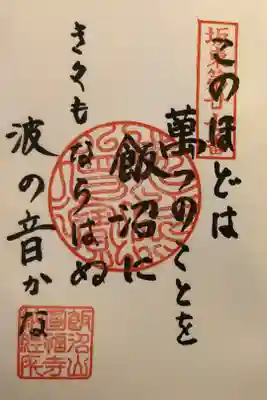 このほどは
萬つのことを
飯沼に
きくもならはぬ
波の音かな
飯沼山
圓福寺
納経所